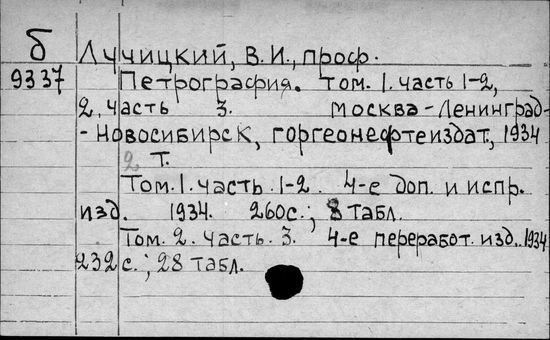 б Лучицкий, В.И., проф.
9337 Петрография. Том. 1. часть 1-2,
2, часть 3. Москва-Ленинград-
-Новосибирск, горгеонефтеиздат, 1934
2 т.
Том. 1. часть. 1-2. 4-е доп. и испр.
изд. 1934. 260с.; 8 табл.
Том. 2. часть. 3. 4-е переработ. изд. 1934
232с.; 28 табл.